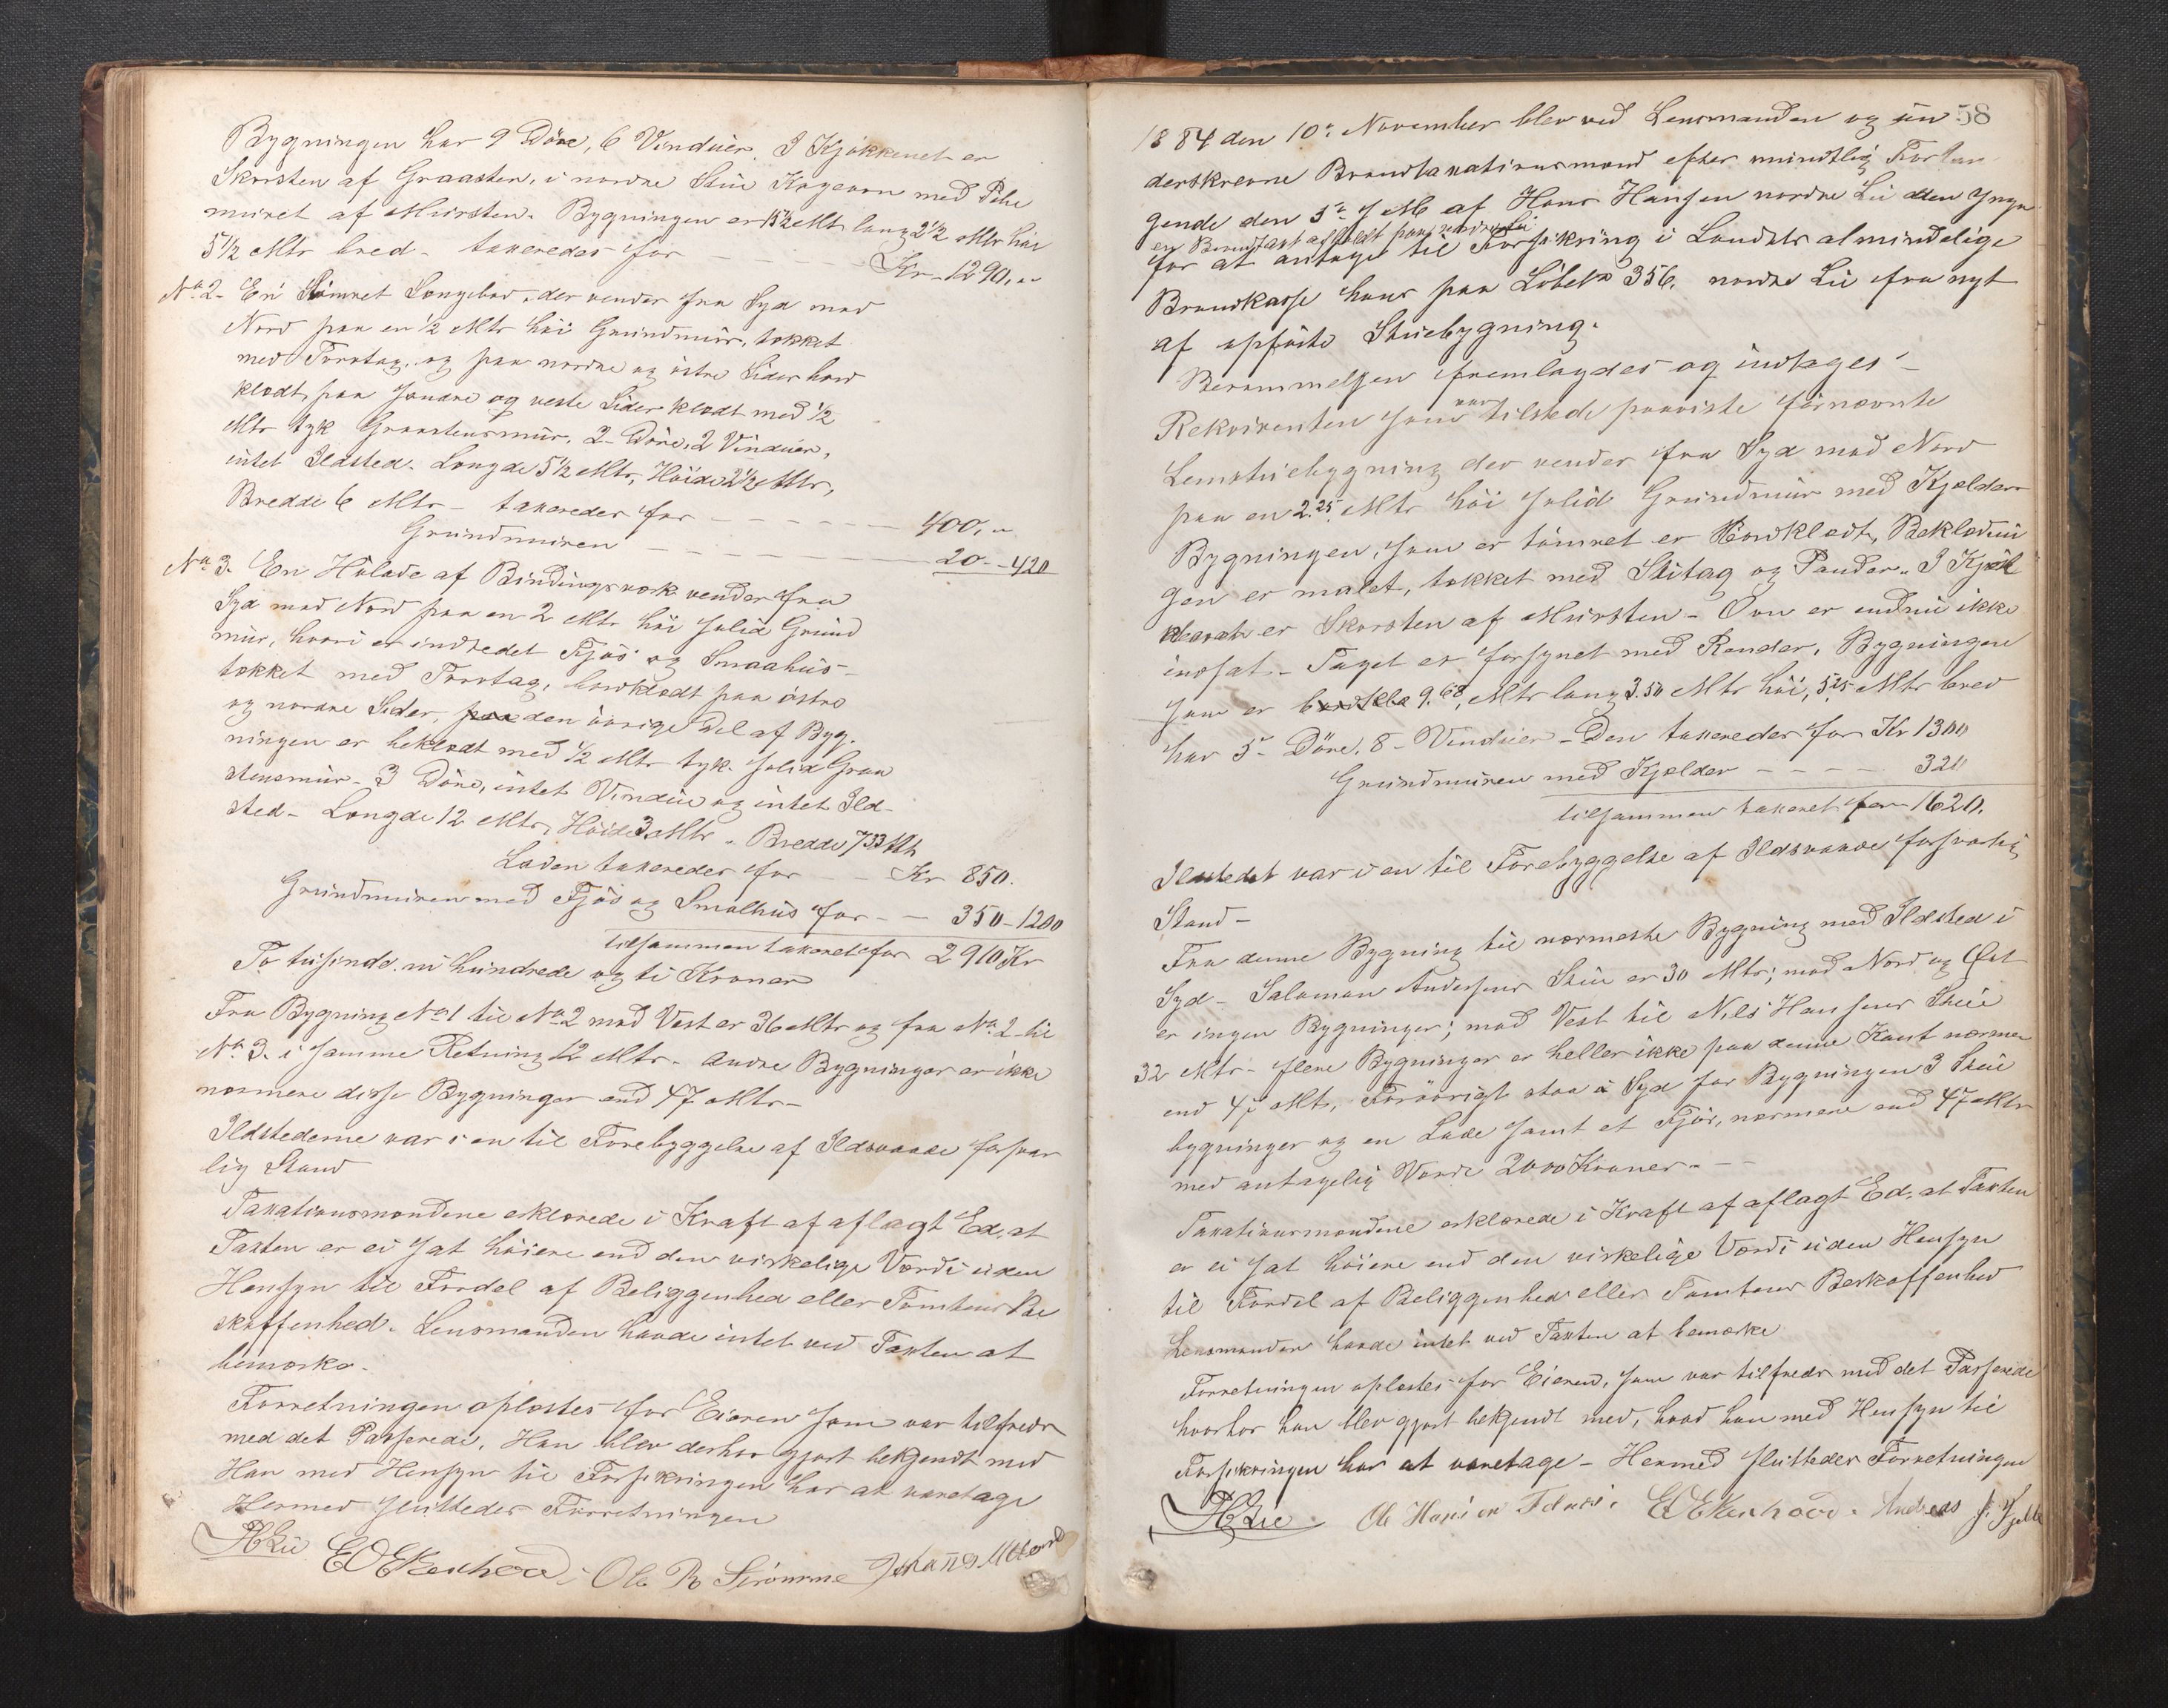 Bygningen har 9 Döre, 6 Vinduer. I Kjökkenet er
Skorsten af Graasten, i nordre Stue Kogeovn med Pibe
muret af Mursten. Bygningen er 15½ Mtr lang 2½ Mtr höi
5½ Mtr bred - taxeredes for - - - - Kr 1290,"
No 2. En tömret Longebod, der vender fra Syd mod
Nord paa en ½ Mtr höi Grundmur, tækket
med Torvtag, og paa nordre og östre Sider bord
klædt, paa söndre og vestre Sider klædt med ½
Mtr tyk Graastensmur, 2 Döre, 2 Vinduer,
intet Ildsted. Længde 5½ Mtr, Höide 2½ Mtr,
Bredde 6 Mtr - taxeredes for - - - - - 400,"
Grundmuren - - - - - - 20 - 420
No 3. En Hölade af Bindingsværk vender fra
Syd mod Nord paa en 2 Mtr höi solid Grund
mur, hvori er indredet Fjös og Smaahus -
tækket med Torvtag, bordklædt paa östre
og nordre Sider, paa den övrige Del af Byg-
ningen er beklædt med ½ Mtr tyk solid Graa
stensmur - 3 Döre, intet Vindue og intet Ild-
sted - Længde 12 Mtr, Höide 3 Mtr - Bredde 7.33 Mtr
Laden taxeredes for - - Kr 850.
Grundmuren med Fjös og Smalhus for - - 350 - 1200
tilsammen taxeret for 2910 Kr
To tusinde ni hundrede og ti Kroner
Fra Bygning No 1 til No 2 mod Vest er 36 Mtr og fra No 2 til
No 3. i samme Retning 12 Mtr - andre Bygninger er ikke
nærmere disse Bygninger end 47 Mtr -
Ildstederne var i en til Forebyggelse af Ildsvaade forsvar
lig Stand
Taxationsmændene erklærede i Kraft af aflagt Ed, at
Taxten er ei sat höiere end den virkelige Værdi uden
Hensyn til Fordel af Beliggenhed eller Tomtens Be
skaffenhed. Lensmanden havde intet ved Taxten at
bemærke.
Forretningen oplæstes for Eieren som var tilfreds
med det Passerede, Han blev derhos gjort bekjendt med
Han med Hensyn til Forsikringen har at varetage
Hermed sluttedes Forretningen
Ole R
58
1884 den 10de November blev ved Lensmanden og un
derskrevne Brandtaxationsmænd efter mundtlig Forlan
gende den 5te d M af Hans Hansen nordre Lie den yngre
en Brandtaxt afholdt paa nordre Lie
for at antages til Forsikring i Landets almindelige
Brandkasse hans paa Löbe No 356, nordre Lie fra nyt
af opförte Stuebygning.
Berammelsen fremlagdes og indtages -
Rekvirenten som var tilstede paaviste fornævnte
Lemstuebygning der vender fra Syd mod Nord
paa en 2.25 Mtr höi solid Grundmur med Kjælder
Bygningen, som er tömret er Bordklædt, Beklædnin
gen er malet, tækket med Stitag og Pander. I Kjæl
deren er Skorsten af Mursten - Ovn er endnu ikke
indsat - Taget er forsynet med Render. Bygningen
som er 9.68 Mtr lang 3.50 Mtr höi, 5.25 Mtr bred
har 5 Döre, 8 Vinduer - Den taxeredes for Kr 1300
Grundmuren med Kjælder - - - - 320
tilsammen taxeret for 1620.
Ildstedet var i en til Forebyggelse af Ildsvaade forsvarlig
Stand -
Fra denne Bygning til nærmeste Bygning med Ildsted i
Syd - Salamon Andersens Stue er 30 Mtr; mod Nord og Öst
er ingen Bygninger; mod Vest til Nils Hansens Stue
32 Mtr - flere Bygninger er heller ikke paa denne Kant nærmere
end 47 Mtr, Forövrigt staa i Syd for Bygningen 3 Stue
bygninger og en Lade samt et Fjös, nærmere end 47 Mtr
med antagelig Værdi 2000 Kroner - -
Taxationsmændene erklærede i Kraft af aflagt Ed, at Taxten
er ei sat höiere end den virkelige Værdi uden Hensyn
til Fordel af Beliggenhed eller Tomtens Beskaffenhed
Lensmanden havde intet ved Taxten at bemærke
Forretningen oplæstes for Eieren, som var tilfreds med det Passerede
hvorhos han blev gjort bekjendt med, hvad han med Hensyn til
Forsikringen har at varetage - Hermed sluttedes Forretningen
Lie Ole Hansen Andreas